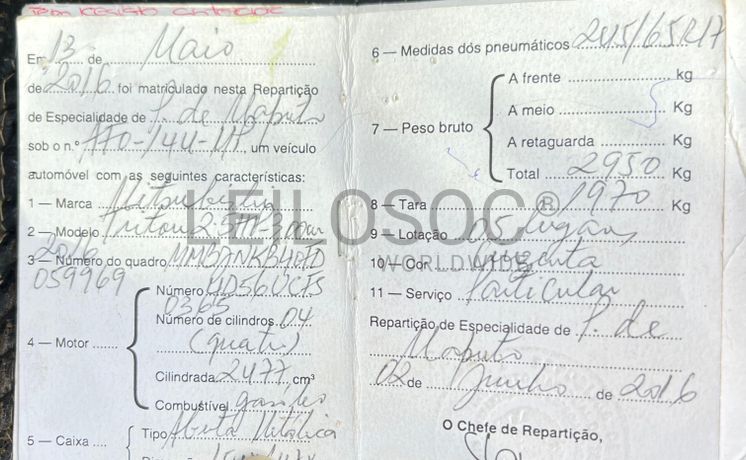 Tem Registo anterior
Em 13 de Maio
de 2016 foi matriculado nesta Repartição
de Especialidade de P. de Maputo
sob o n.º AFO-144-MP, um veículo
automóvel com as seguintes características:
1 — Marca Mitsubishi
2 — Modelo Triton 2.5
2016
3 — Número do quadro MMBJNKB40FD
059969
4 — Motor
Número 4D56UCFS
0365
Número de cilindros 04
(quatro)
Cilindrada 2477 cm³
Combustível gasóleo
5 — Caixa
Tipo Aberta Metálica
6 — Medidas dós pneumáticos 245/65R17
7 — Peso bruto
A frente kg
A meio Kg
A retaguarda Kg
Total 2950 Kg
8 — Tara 1970 Kg
9 — Lotação 05 lugares
10 — Cor cinzenta
11 — Serviço Particular
Repartição de Especialidade de P. de
Maputo
02 de Junho de 2016
O Chefe de Repartição,
LEILOSOC®
WORLDWIDE